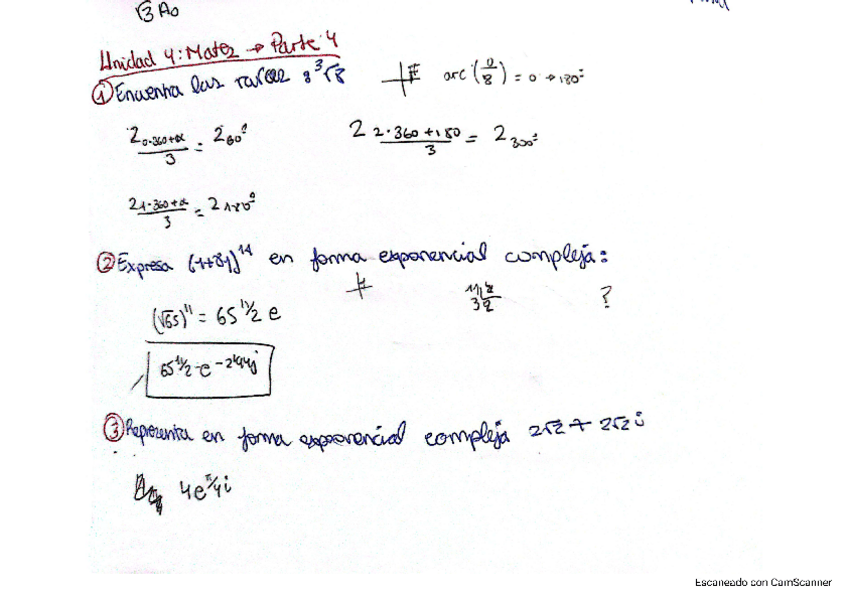 Unidad 4: Mates → Parte 4
① Encuentra las raices 8 ³√8 arc (0/8) = 0 → 180º
2 0·360+α/3 = 2 60º 2 2·360+180/3 = 2 300º
2 1·360+α/3 = 2 180º
② Expresa (1+8j)¹¹ en forma exponencial compleja:
(√65)¹¹ = 65 11/2 e ?
65 11/2 · e
③ Representa en forma exponencial compleja 2√2 + 2√2 i
4e π/4 i
Escaneado con CamScanner